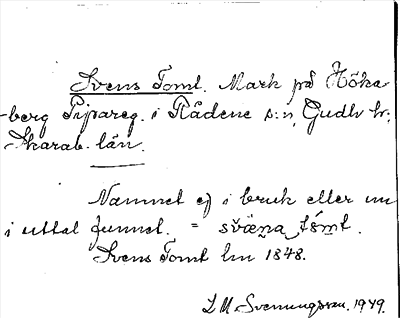 Svens Tomt. Mark på Höka
-berg Pipareg. i Rådene s:n, Gudh. hr;
Skarab. län.
Namnet ej i bruk eller nu
i uttal funnet. = svä̱na tǻmt.
Svens Tomt lm 1848.
L M Svenungsson. 1949.